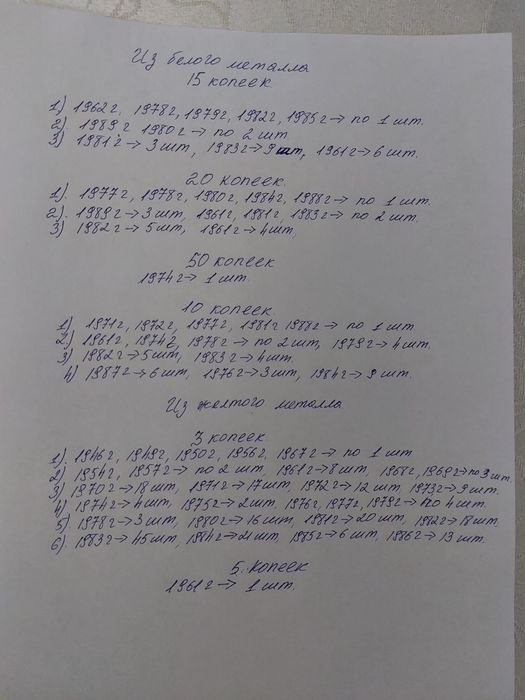 Из белого металла
15 копеек.
1) 1962г, 1978г, 1979г, 1982г, 1985г → по 1 шт.
2) 1989г 1980г → по 2 шт
3) 1981г → 3 шт, 1983г → 9 шт, 1961г → 6 шт.
20 копеек.
1). 1977г, 1978г, 1980г, 1984г, 1988г → по 1 шт.
2). 1989г → 3 шт, 1961г, 1981г, 1983г → по 2 шт.
3) 1982г → 5 шт, 1961г → 4 шт.
50 копеек
1974г → 1 шт.
10 копеек.
1) 1971г, 1972г, 1977г, 1981г 1988г → по 1 шт.
2) 1961г, 1974г, 1978г → по 2 шт, 1979г → 4 шт.
3) 1982г → 5 шт, 1983г → 4 шт.
4) 1987г → 6 шт, 1976г → 3 шт, 1984г → 9 шт.
Из желтого металла.
3 копеек
1). 1946г, 1949г, 1950г, 1956г, 1967г → по 1 шт
2) 1954г, 1957г → по 2 шт, 1961г → 8 шт, 1968г, 1969г → по 3 шт.
3) 1970г → 18 шт, 1971г → 17 шт, 1972г → 12 шт, 1973г → 9 шт.
4) 1974г → 4 шт, 1975г → 2 шт. 1976г, 1977г, 1979г → по 4 шт.
5) 1978г → 3 шт, 1980г → 16 шт, 1981г → 20 шт, 1982г → 18 шт.
6) 1983г → 45 шт, 1984г → 21 шт, 1985г → 6 шт, 1986г → 13 шт.
5. Копеек
1961г → 1 шт.